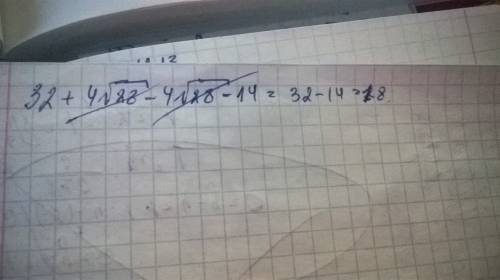 32 + 4√28 - 4√28 - 14 = 32 - 14 = 18